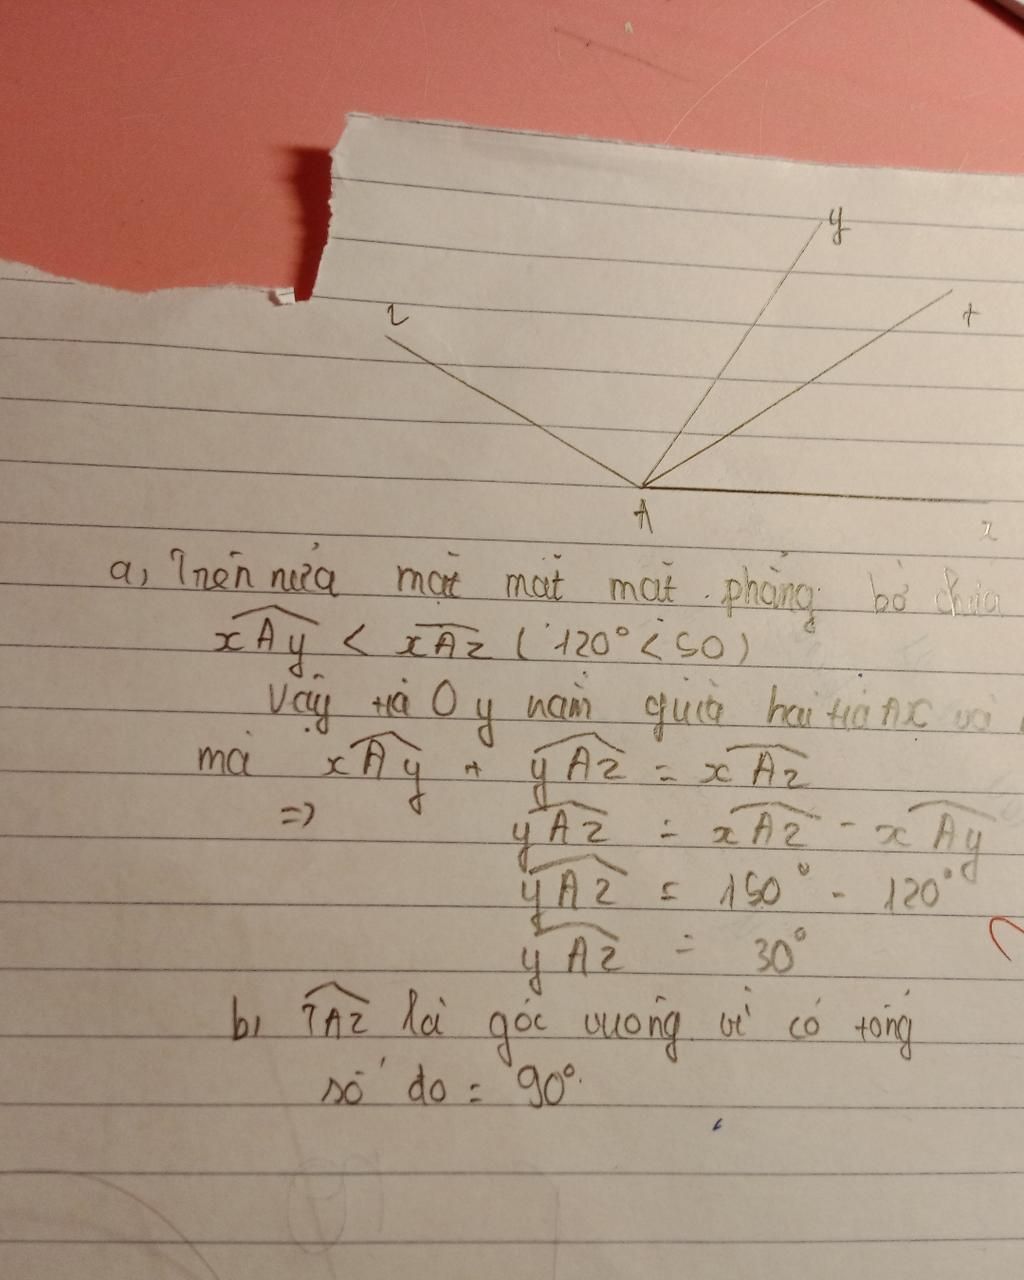 y
z
t
A
x
a, Trên nửa mặt mặt mặt phẳng bờ chứa
xAy < xAz ( 120° < 150 )
Vậy tia Oy nằm giữa hai tia AX và
mà xAy + yAz = xAz
=> yAz = xAz - xAy
yAz = 150° - 120°
yAz = 30°
b, TAz là góc vuông vì có tổng
số đo = 90°.